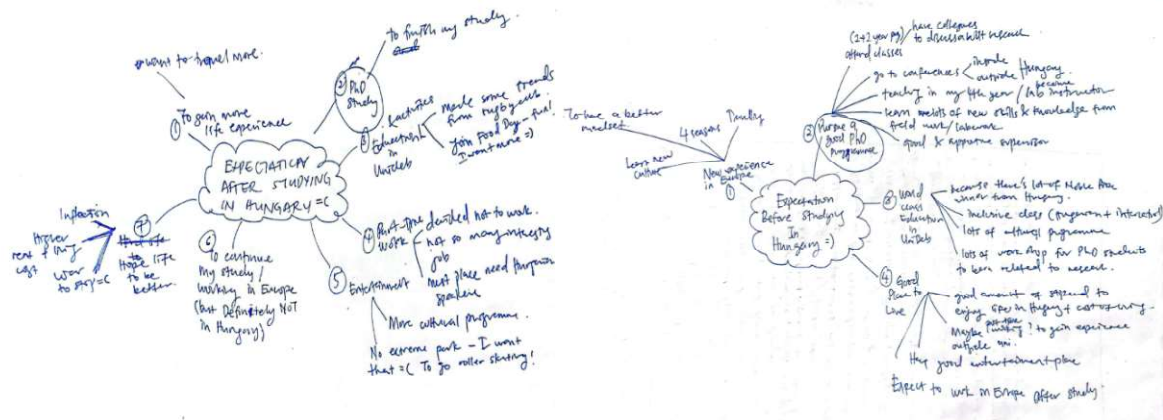 want to travel more.
① To gain more
life experience
to finish my study.
② PhD
study
③ Education
& activities
in
UniDeb
made some friends
from rugby club
join Food Day – fun!
I want more =)
EXPECTATION
AFTER STUDYING
IN HUNGARY =(
④ Part-time
work
decided not to work.
not so many interesting
job
most place need hungarian
speaking
⑤ Entertainment
More cultural programme.
No extreme park – I want
that =( To go roller skating!
⑥ To continue
my study /
working in Europe
(but Definitely NOT
in Hungary)
⑦
Hope life
to be
better.
Inflation
Higher
rent + living
cost
War
to stop =(
Expectation
Before Studying
In
Hungary =)
① New experience
in Europe
To have a better
mindset
Learn new
culture
4 seasons
② Pursue a
good PhD
programme
(2+2 year prg)
attend classes
have colleagues
to discuss about research
go to conferences
inside
outside
Hungary.
teaching in my 4th year / become
lab instructor
learn lots of new skills & knowledge from
field work / labwork
good & supportive supervisor
③ World
class
Education
in
UniDeb
because there's lot of Noble Prize
winner from Hungary.
inclusive class (hungarian + international)
lots of cultural programme
lots of workshop for PhD students
to learn related to research.
④ Good
place to
live
good amount of stipend to
enjoy life in Hungary + cost of living.
Maybe part-time
(working)? to gain experience
outside uni.
Has good entertainment place
Expect to work in Europe after study.